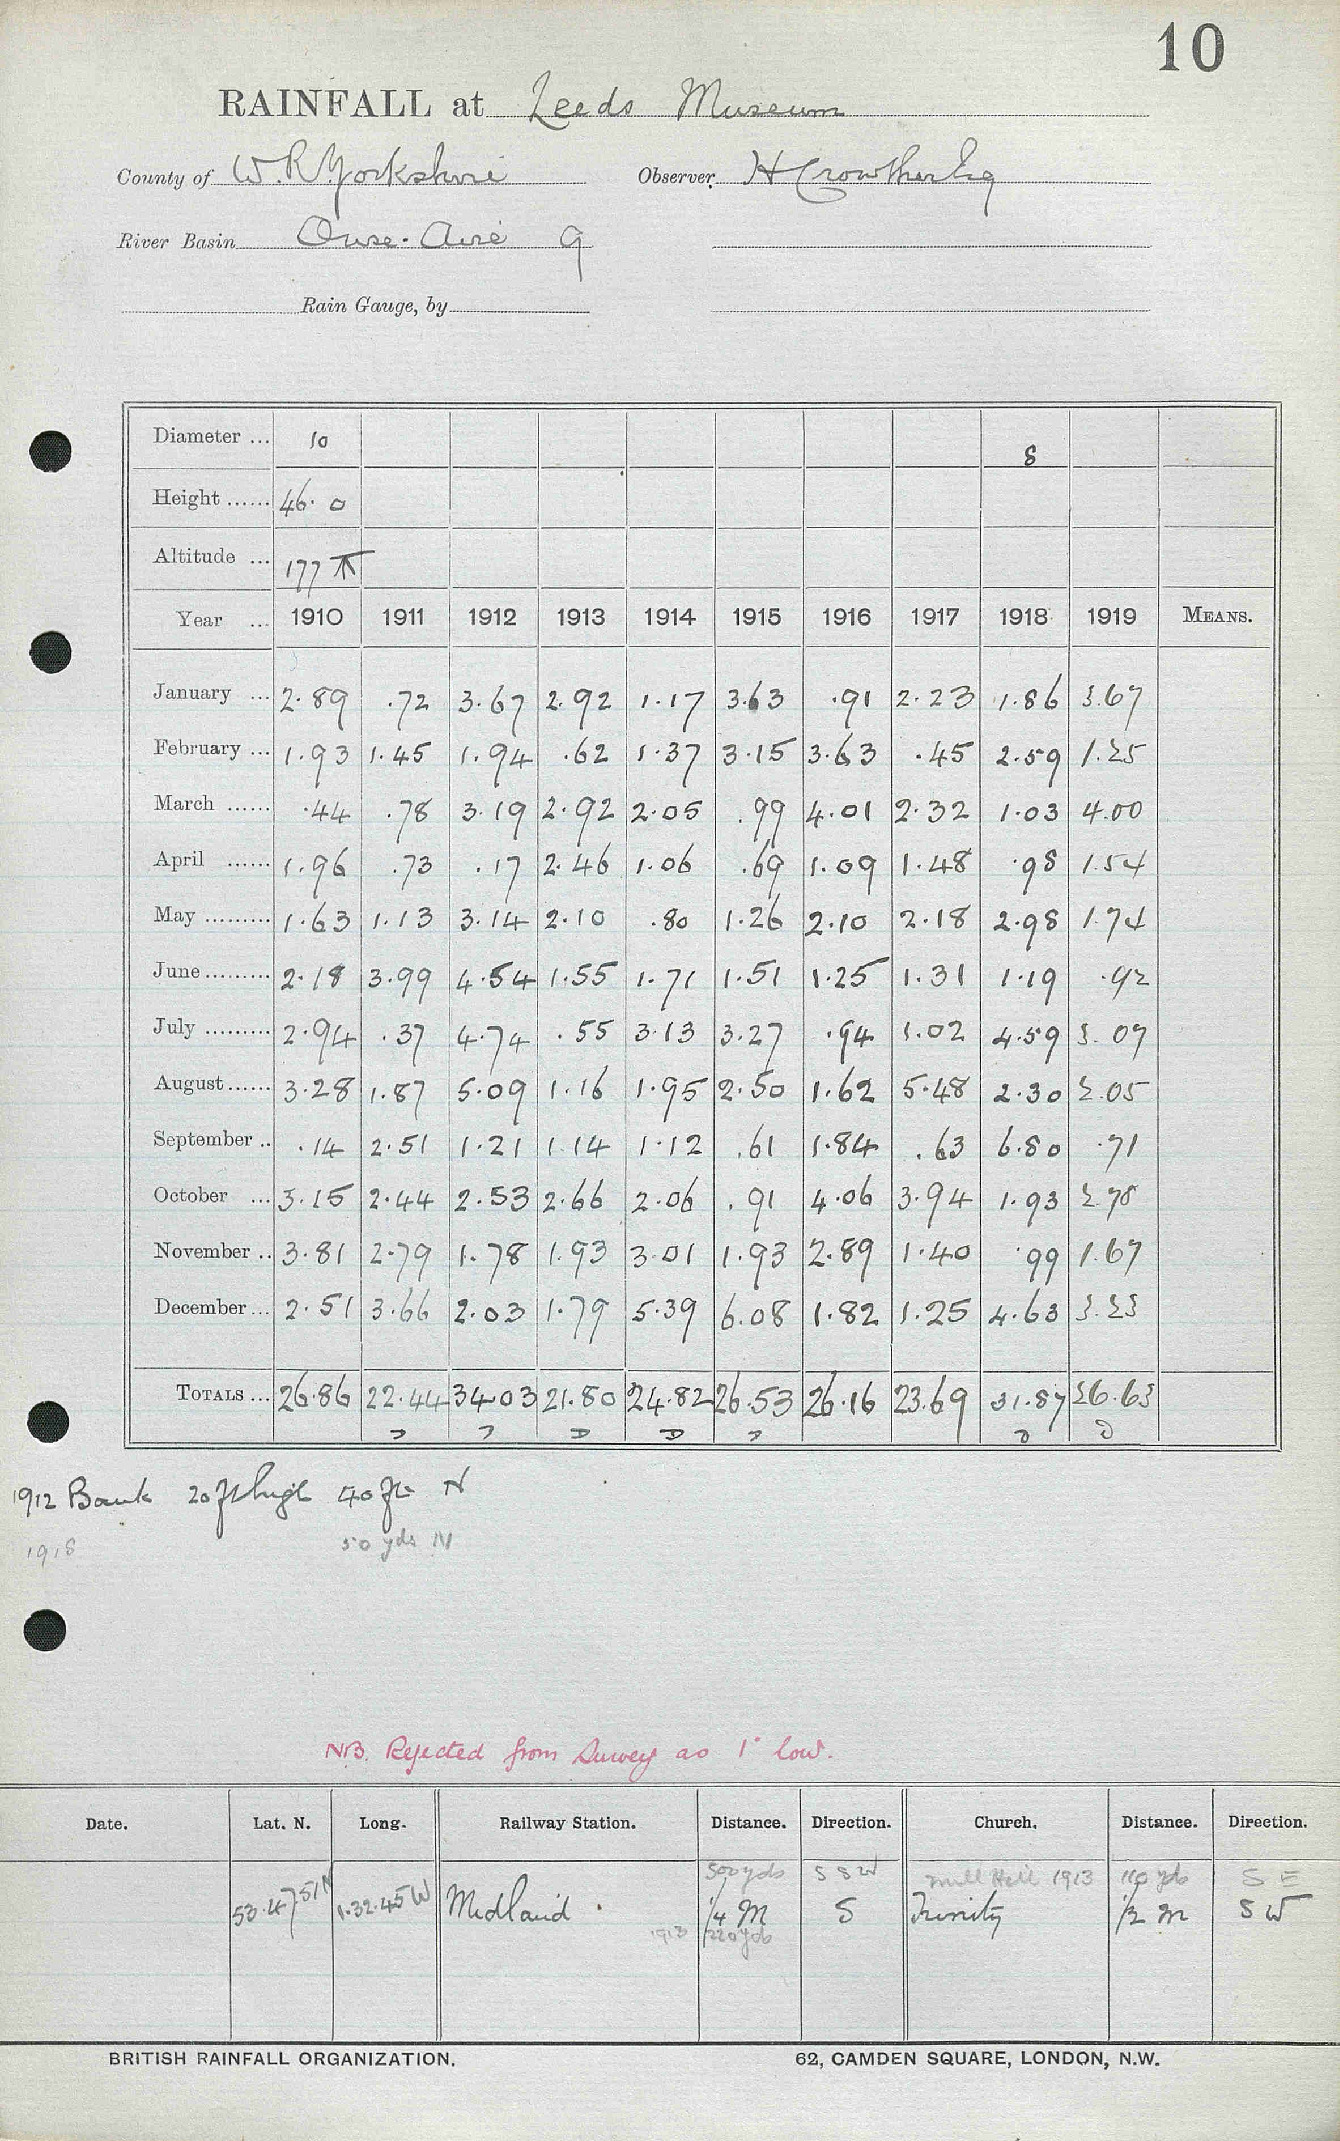 10
RAINFALL at Leeds Museum
County of W.R. Yorkshire Observer, H Crowther Esq
River Basin Ouse-Aire 9
Rain Gauge, by
Diameter ... 10 8
Height ...... 46.0
Altitude ... 177
Year ... 1910 1911 1912 1913 1914 1915 1916 1917 1918 1919 MEANS.
January ... 2.89 .72 3.67 2.92 1.17 3.63 .91 2.23 1.86 3.67
February ... 1.93 1.45 1.94 .62 1.37 3.15 3.63 .45 2.59 1.25
March ...... .44 .78 3.19 2.92 2.05 .99 4.01 2.32 1.03 4.00
April ...... 1.96 .73 .17 2.46 1.06 .69 1.09 1.48 .98 1.54
May ......... 1.63 1.13 3.14 2.10 .80 1.26 2.10 2.18 2.98 1.74
June ......... 2.18 3.99 4.54 1.55 1.71 1.51 1.25 1.31 1.19 .92
July ......... 2.94 .37 4.74 .55 3.13 3.27 .94 1.02 4.59 3.07
August ...... 3.28 1.87 5.09 1.16 1.95 2.50 1.62 5.48 2.30 2.05
September .. .14 2.51 1.21 1.14 1.12 .61 1.84 .63 6.80 .71
October ... 3.15 2.44 2.53 2.66 2.06 .91 4.06 3.94 1.93 2.78
November .. 3.81 2.79 1.78 1.93 3.01 1.93 2.89 1.40 .99 1.67
December ... 2.51 3.66 2.03 1.79 5.39 6.08 1.82 1.25 4.63 3.23
TOTALS ... 26.86 22.44 34.03 21.80 24.82 26.53 26.16 23.69 31.87 26.63
1912 Bank 20 ft high 40 ft N
1918 50 yds N
NB. Rejected from Survey as 1" low.
Date. Lat. N. Long. Railway Station. Distance. Direction. Church. Distance. Direction.
500 yds S S W Mill Hill 1913 110 yds S E
53.47.51N 1.32.45W Midland 1/4 M S Trinity 1/2 m S W
1913 220 yds
BRITISH RAINFALL ORGANIZATION. 62, CAMDEN SQUARE, LONDON, N.W.